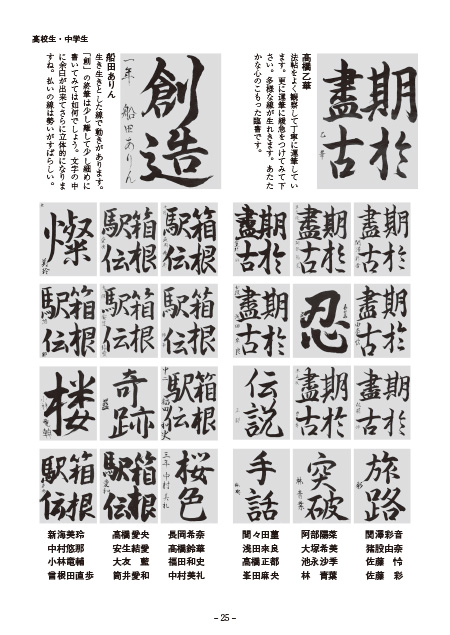 高校生・中学生
期於
盡古
乙華
高橋乙華
法帖をよく観察して丁寧に運筆してい
ます。更に運筆に緩急をつけてみて下
さい。多様な線が生れきます。あたた
かな心のこもった臨書です。
創造
一年 船田ありん
船田ありん
生き生きとした線で動きがあります。
「創」の終筆は少し離して少し細めに
書いてみては如何でしょう。文字の中
に余白が出来てさらに立体的になりま
すね。払いの線は勢いがすばらしい。
期於
盡古
期於
盡古
期於
盡古
箱根
駅伝
箱根
駅伝
燦
美玲
期於
盡古
忍
期於
盡古
箱根
駅伝
箱根
駅伝
箱根
駅伝
期於
盡古
期於
盡古
伝説
箱根
駅伝
奇跡
藍
楼
旅路
彩
突破
林 青葉
手話
桜色
三年 中村美礼
箱根
駅伝
箱根
駅伝
関澤彩音
猪股由奈
佐藤 怜
佐藤 彩
阿部陽菜
大塚希美
池永沙季
林 青葉
間々田菫
浅田来良
高橋正都
峯田麻央
長岡希奈
高橋鈴華
福田和史
中村美礼
高橋愛央
安生結愛
大友 藍
筒井愛和
新海美玲
中村悠那
小林竜輔
曽根田直歩
－25－